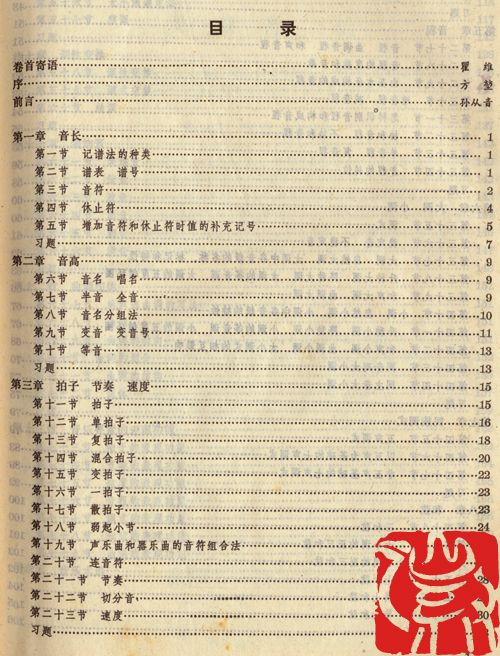 目 录
卷首寄语 瞿 维
序 方 堃
前言 孙从音
第一章 音长 1
第一节 记谱法的种类 1
第二节 谱表 谱号 1
第三节 音符 2
第四节 休止符 4
第五节 增加音符和休止符时值的补充记号 5
习题 7
第二章 音高 9
第六节 音名 唱名 9
第七节 半音 全音 9
第八节 音名分组法 10
第九节 变音 变音号 11
第十节 等音 13
习题 13
第三章 拍子 节奏 速度 15
第十一节 拍子 15
第十二节 单拍子 16
第十三节 复拍子 18
第十四节 混合拍子 20
第十五节 变拍子 22
第十六节 一拍子 23
第十七节 散拍子 23
第十八节 弱起小节 24
第十九节 声乐曲和器乐曲的音符组合法
第二十节 连音符
第二十一节 节奏 28
第二十二节 切分音
第二十三节 速度 30
习题